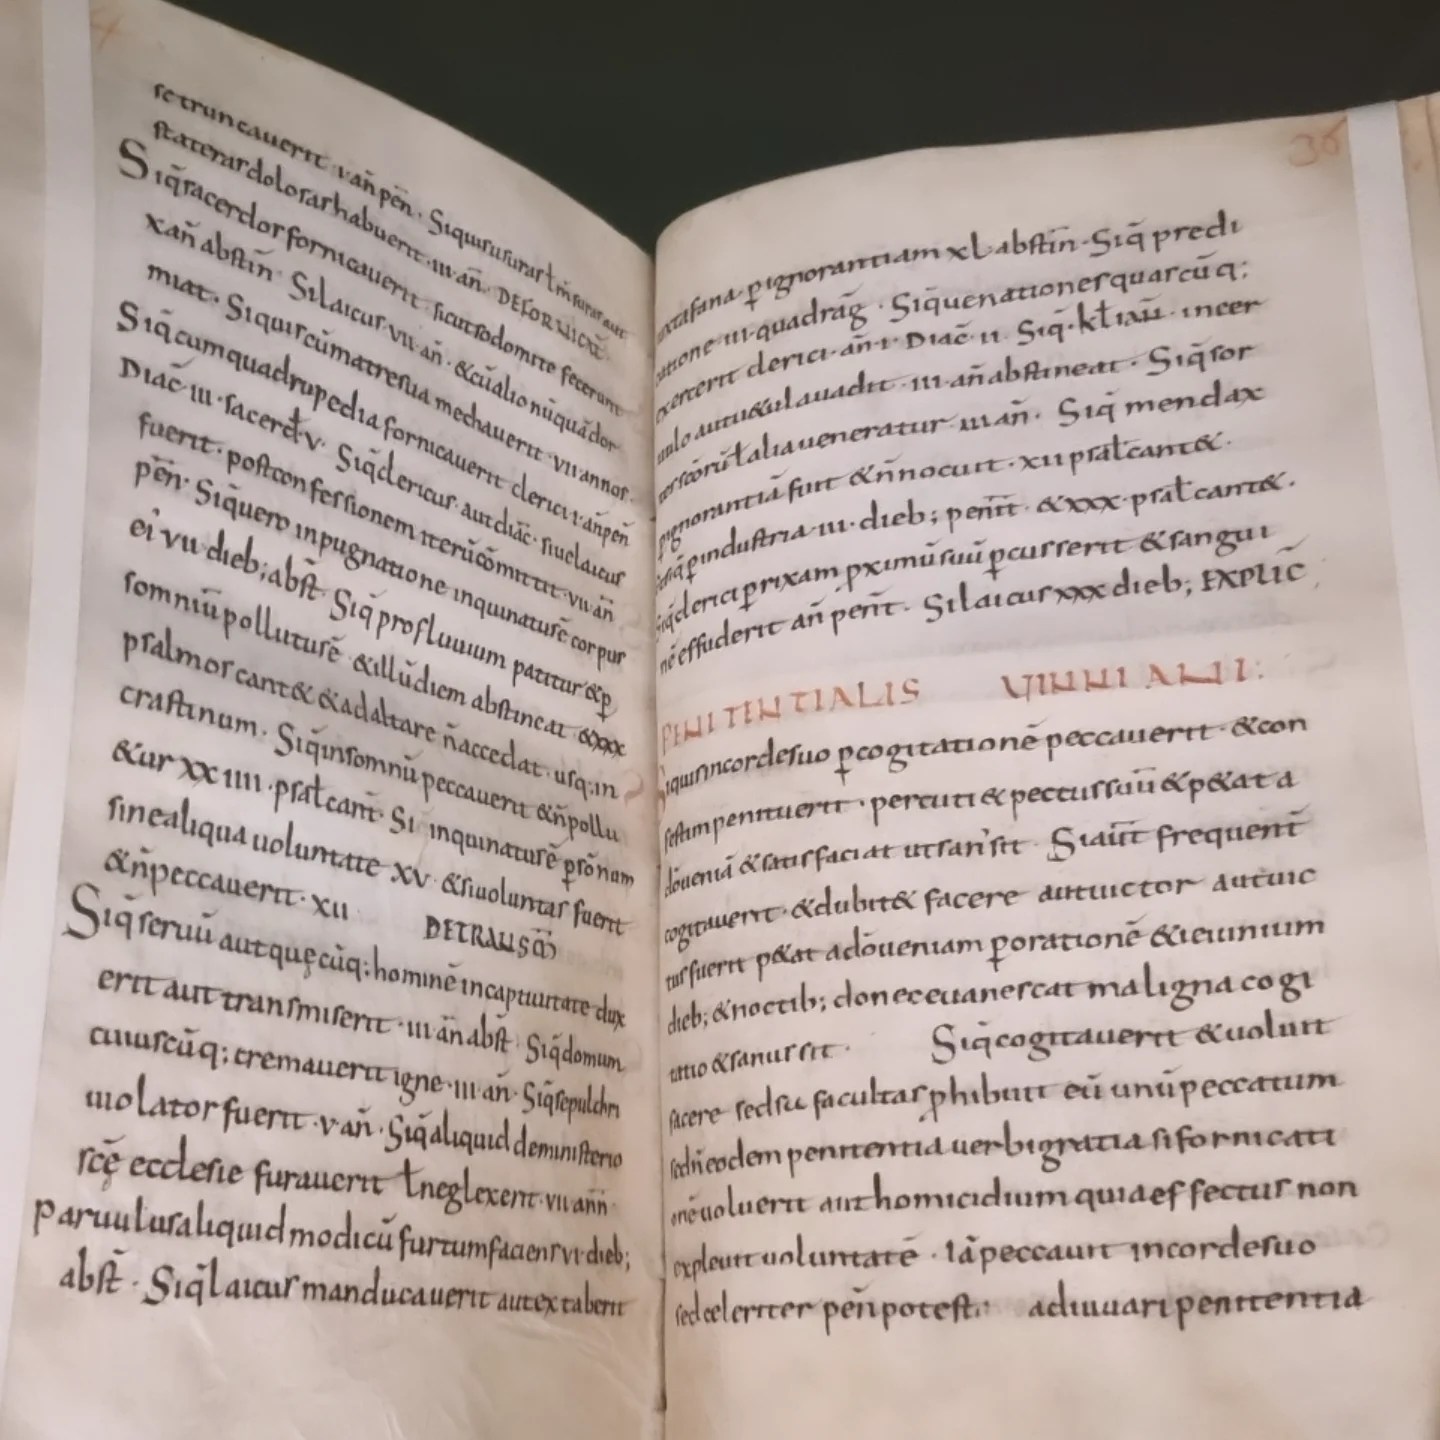 se truncauerit · v · an̄ pēn · Siquis usuras ł m̄suras aut
stateras dolosas habuerit · iii · an̄. DE FORNICAT̄
Siq̄ sacerdos fornicauerit sicut sodomite fecerunt
x an̄ abstin̄ · Si laicus vii · an̄ · & cū alio nūquā dor
miat · Siquis cū matre sua mechauerit · vii annos ·
Siq̄ cum quadrupedia fornicauerit clerici · i · an̄ pen̄
Diac̄ · iii · sacerđ · v · Siq̄ clericus · aut diac̄ · siue laicus
fuerit · post confessionem iterū cōmittit · vii an̄
pēn · Siq̄ uero inpugnatione inquinatus ē corpus
ei' vii dieb; abst̄ · Siq̄ profluuium patitur & p̱
somniū pollutus ē & illū diem abstineat & xxx
psalmos cant& & ad altare n̄ accedat · usq; in
crastinum · Siq̄ in somnū peccauerit & n̄ pollu
&ur xxiiii · psał cant̄ · Si inquinatus ē p̱ sōnum
sine aliqua uoluntate xv · & si uoluntas fuerit
& n̄ peccauerit · xii DE TRANSM̄
Siq̄ seruū aut quęcūq; hominē in captiuitate dux
erit aut transmiserit · iii · an̄ abst̄ · Siq̄ domum
cuiuscūq; cremauerit igne · iii · an̄ · Siq̄ sepulchri
uiolator fuerit · v · an̄ · Siq̄ aliquid de ministerio
scę̄ ecclesie furauerit ł neglexerit · vii · an̄n ·
Paruulus aliquid modicū furtum faciens vi · dieb;
abst̄ · Siq̄ laicus manducauerit aut extaberit
iuxta fana p̱ ignorantiam xl abstin̄ · Siq̄ predi
catione · iii · quadrāg · Siq̄ uenationes quascūq;
exercerit clerici · an̄ · i · Diac̄ · ii · Siq̄ · kł iaū · in cer
uulo aut uadit · iii · an̄ abstineat · Siq̄ sor
ł alia ueneratur · iii an̄ · Siq̄ mendax
p̱ ignorantiā fuit & n̄ nocuit · xii psał cant& ·
p̱ industria · iii · dieb; pēnit̄ · & xxx · psał cant& ·
Siq̄ clerici p̱ rixam p̱ximū suū p̱cusserit & sangui
nē effuderit an̄ pēnt̄ · Si laicus xxx dieb; EXPLIC̄
PENITENTIALIS VINNIANI :
Siquis in corde suo p̱ cogitationē peccauerit · & con
festim penituerit · percuti& pectus suū & p&at a
dō ueniā & satisfaciat ut san' sit · Si aut̄ frequent̄
cogitauerit · & dubit& facere aut uictor aut uic
tus fuerit p&at a dō ueniam p̱ orationē & ieiunium
dieb; & noctib; donec euanescat maligna cogi
tatio & sanus sit · Siq̄ cogitauerit & voluit
facere sed su facultas p̱hibuit eū unū peccatum
sed n̄ eodem penitentia uerbi gratia si fornicati
onē uoluerit aut homicidium quia effectus non
expleuit uoluntatē · Iā peccauit in corde suo
sed celeriter pēn potest · adiuuari penitentia
36